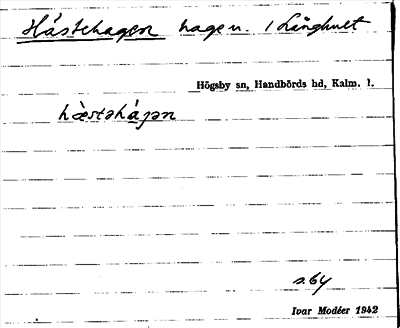 Hästehagen hage u. / Långhult
Högsby sn, Handbörds hd, Kalm. l.
hæ̀stəháɡən
s. 64
Ivar Modéer 1942